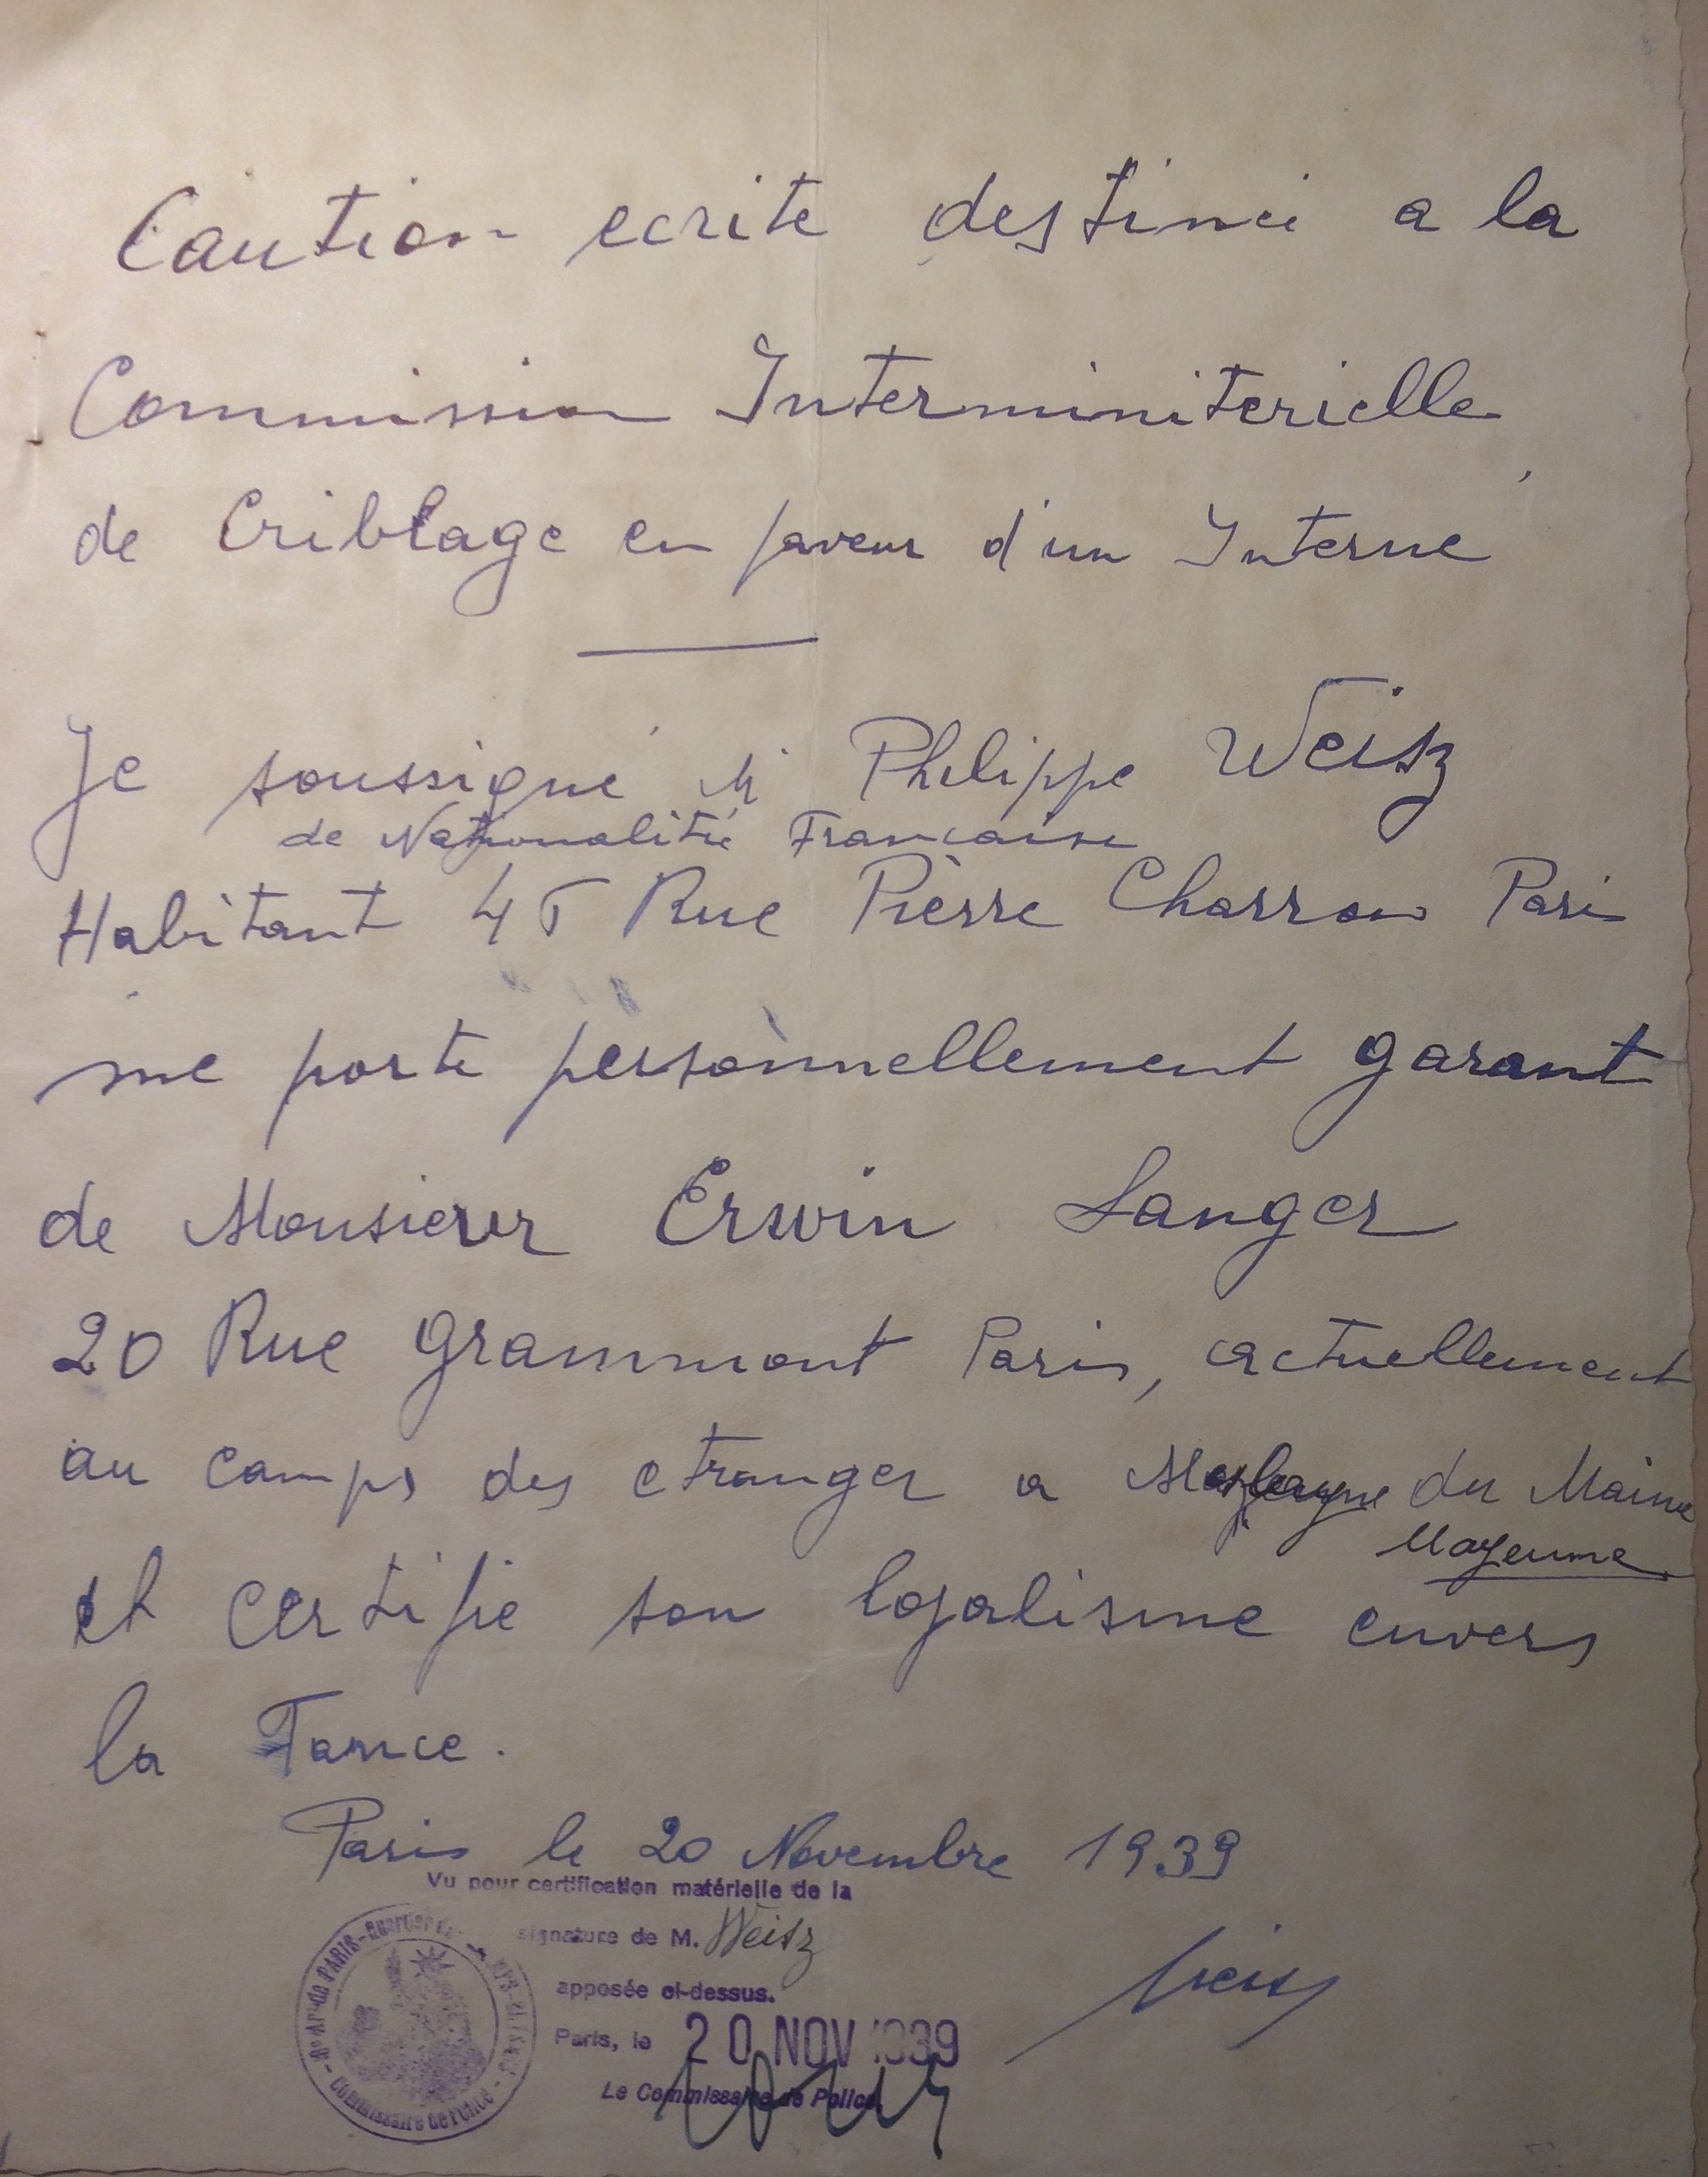 Caution ecrite destineé a la
Commission Interminiterielle
de Criblage en faveur d'un Interné
Je soussigné Mr Philippe Weisz
de Nationalité Francaise
Habitant 45 Rue Pièrre Charron Paris
me porte personnellement garant
de Monsieur Erwin Langer
20 Rue Grammont Paris, actuellement
au camps des etranger a du Maine
Mayenne
et certifie son loyalisme envers
la France.
Paris le 20 Novembre 1939
Vu pour certification matérielle de la
signature de M. Weisz
apposée ci-dessus.
Weisz
Paris, le 20 NOV 1939
Le Commissaire de Police
8e Arrt de PARIS - Quartier des - Commissaire de Police -